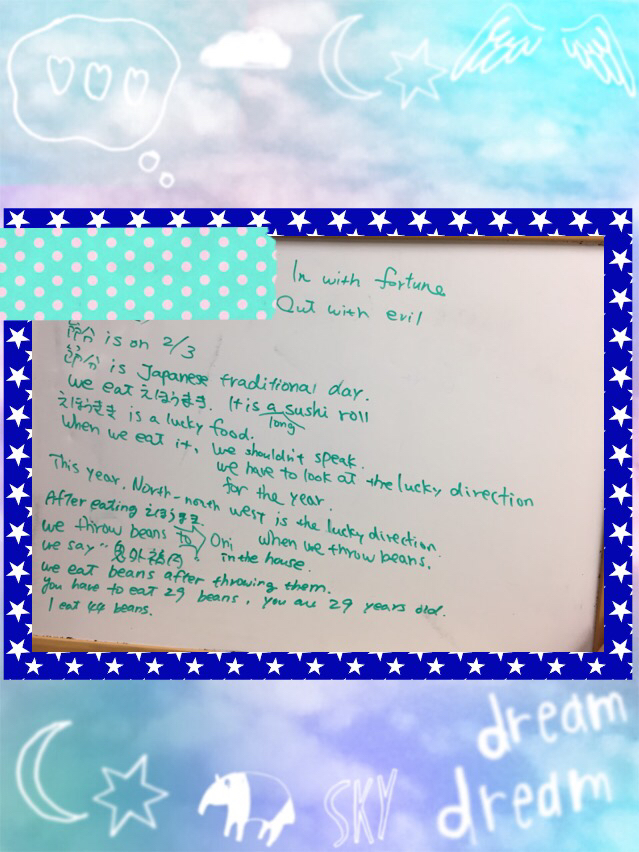 In with fortune
Out with evil
節分 is on 2/3
節分 is Japanese traditional day.
we eat えほうまき. It is a sushi roll
long
えほうまき is a lucky food.
when we eat it, we shouldn't speak.
we have to look at the lucky direction
for the year.
This year, North-north west is the lucky direction.
After eating えほうまき.
we throw beans to Oni
when we throw beans,
we say "鬼外福内" in the house.
we eat beans after throwing them.
you have to eat 29 beans, you are 29 years old.
I eat 44 beans.
dream
dream
SKY